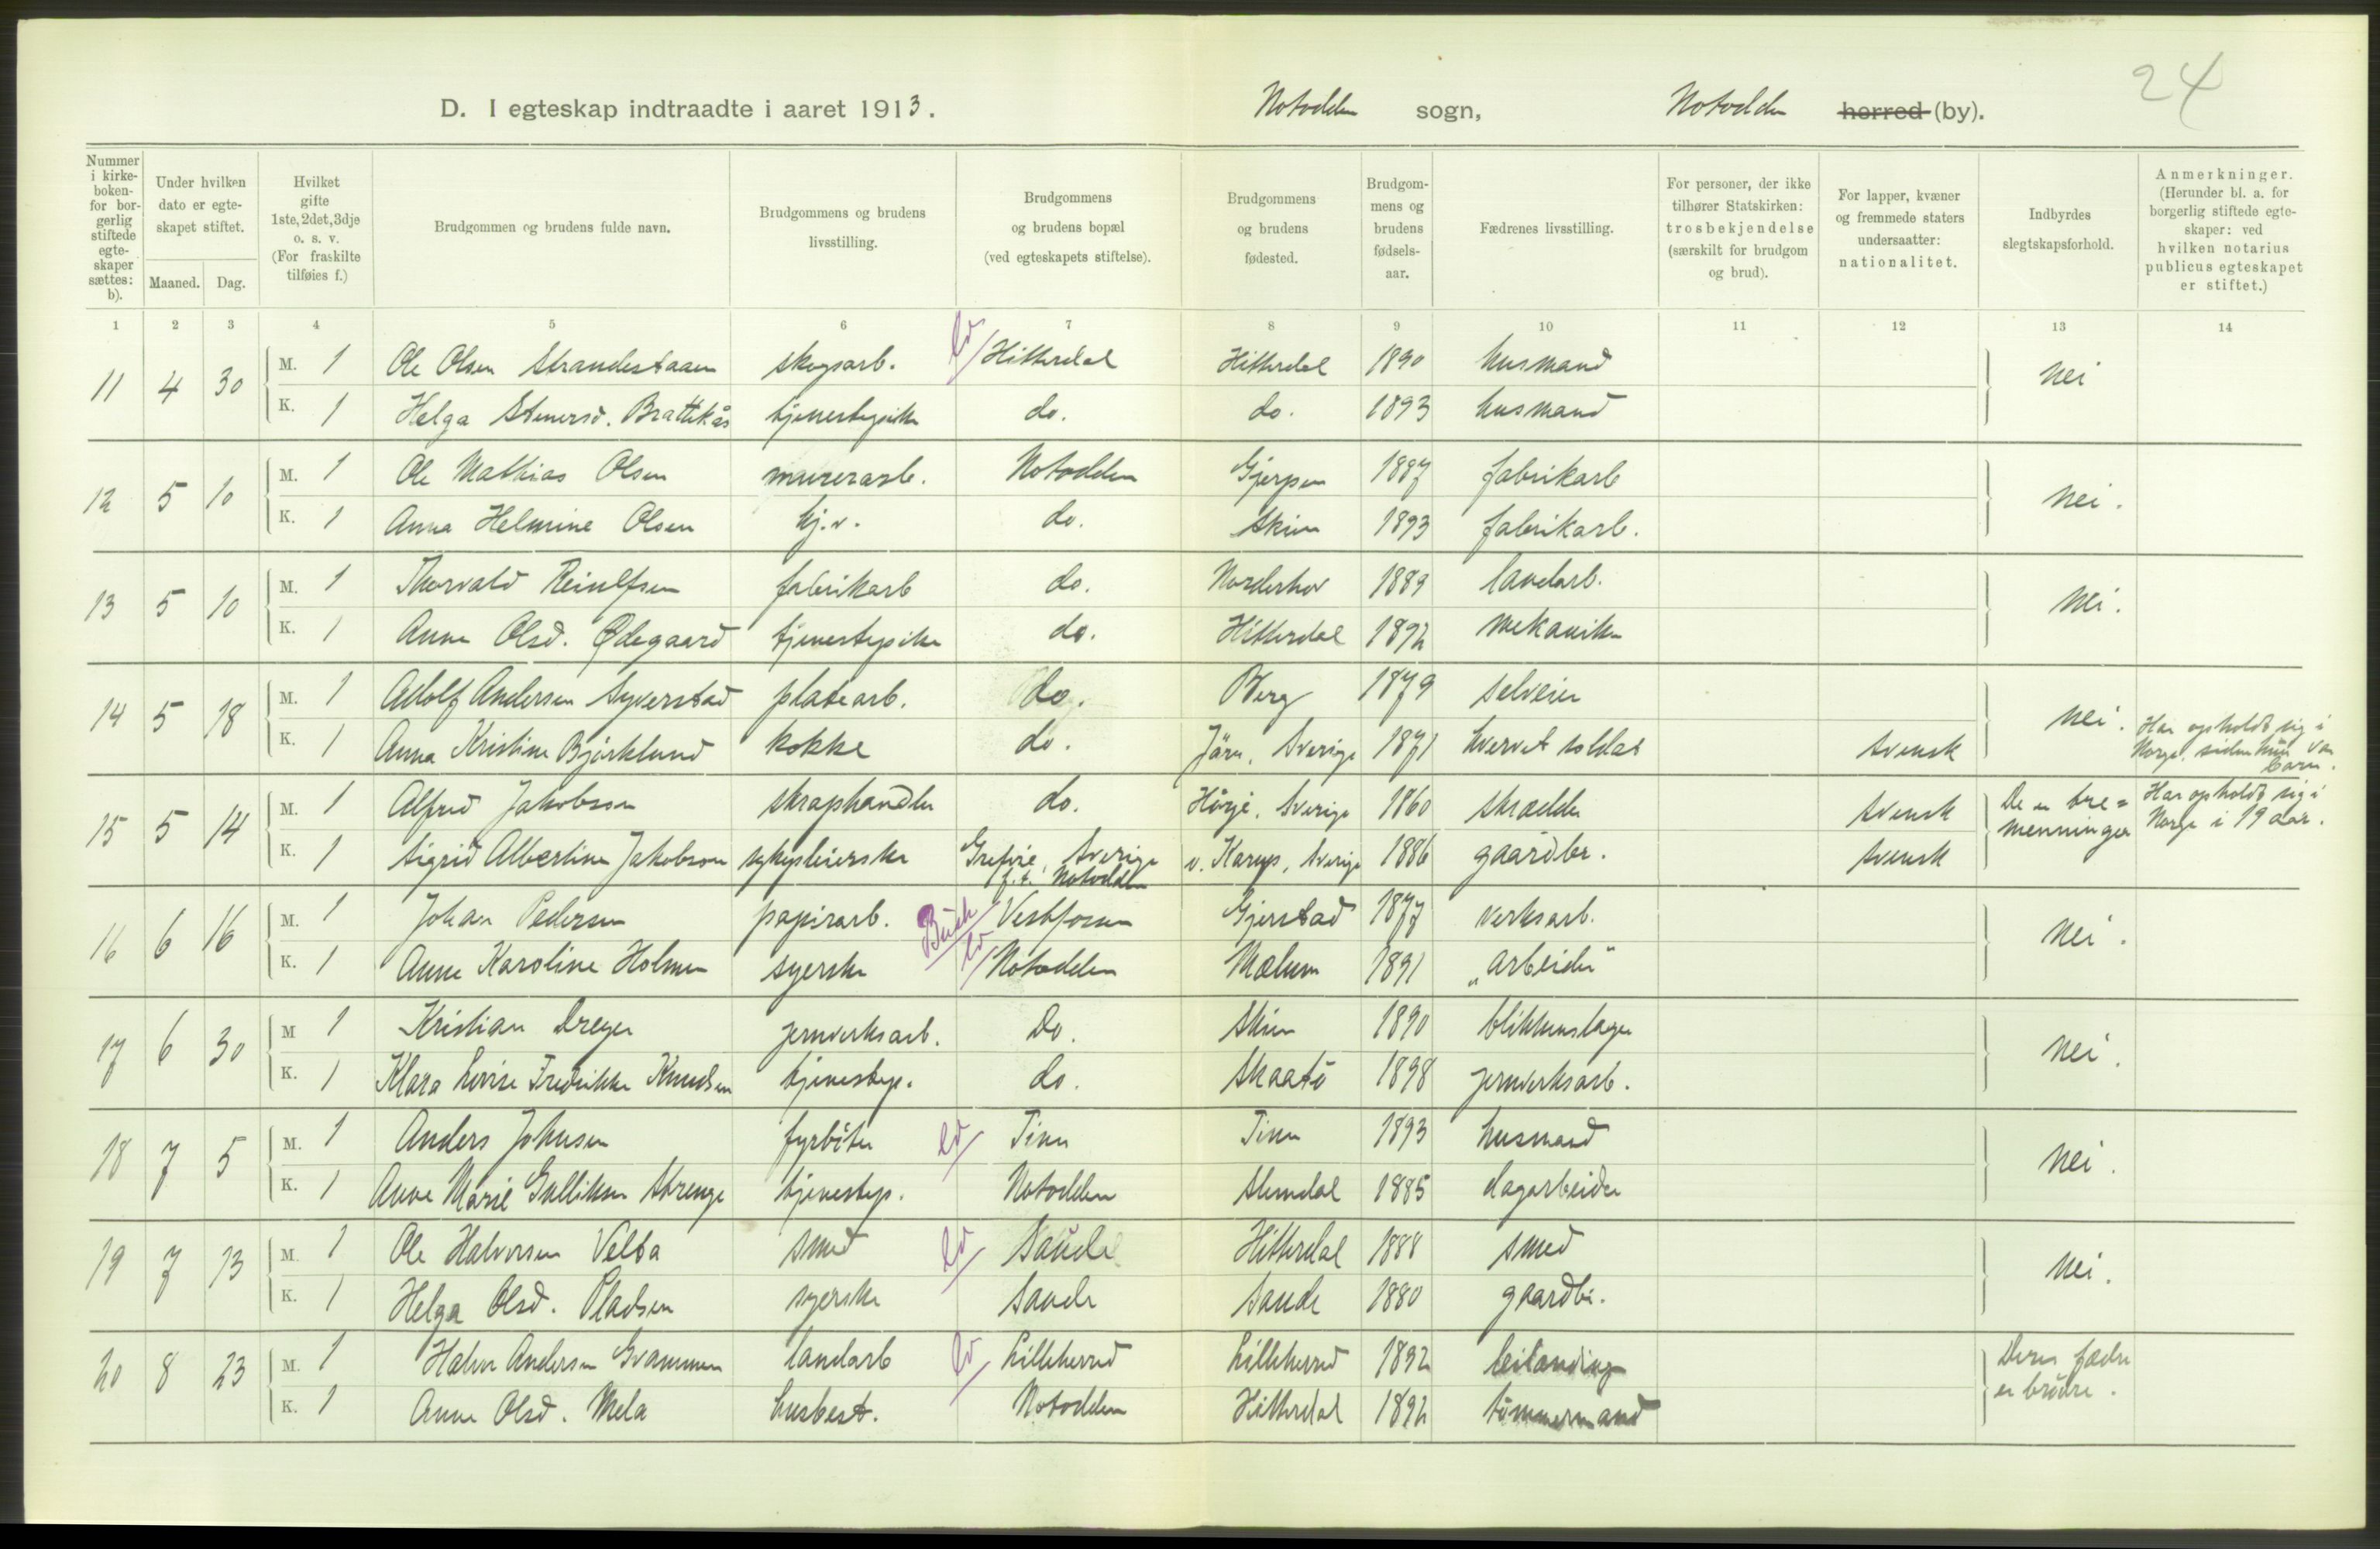 24
D. I egteskap indtraadte i aaret 1913. Notodden sogn, Notodden herred (by).
Nummer i kirkeboken- for borgerlig stiftede egteskaper sættes: b).
Under hvilken dato er egteskapet stiftet.
Maaned. Dag.
Hvilket gifte 1ste, 2det, 3dje o. s. v. (For fraskilte tilføies f.)
Brudgommen og brudens fulde navn.
Brudgommens og brudens livsstilling.
Brudgommens og brudens bopæl (ved egteskapets stiftelse).
Brudgommens og brudens fødested.
Brudgommens og brudens fødselsaar.
Fædrenes livsstilling.
For personer, der ikke tilhører Statskirken: trosbekjendelse (særskilt for brudgom og brud).
For lapper, kvæner og fremmede staters undersaatter: nationalitet.
Indbyrdes slegtskapsforhold.
Anmerkninger. (Herunder bl. a. for borgerlig stiftede egteskaper: ved hvilken notarius publicus egteskapet er stiftet.)
1 2 3 4 5 6 7 8 9 10 11 12 13 14
11 4 30 M. 1 Ole Olsen skogsarb. Hitterdal Hitterdal 1890 husmand nei
K. 1 Helga Stenersd. Brattekås tjenestepike do. do. 1893 husmand
12 5 10 M. 1 Ole Mathias Olsen murerarb. Notodden Gjerpen 1887 fabrikarb nei.
K. 1 Anna Helmine Olsen hj.v. do. Skien 1893 fabrikarb.
13 5 10 M. 1 Thorvald Reinulfsen fabrikarb do. Norderhov 1889 landarb. nei.
K. 1 Anne Olsd. Ødegaard tjenestepike do. Hitterdal 1892 mekaniker
14 5 18 M. 1 Adolf Andersen Syverstad platearb. do. Berg 1879 selveier nei.
K. 1 Anna Kristine Björklund kokke do. Järn, Sverige 1871 hvervet soldat svensk Har opholdt sig i Norge, siden hun var barn.
15 5 14 M. 1 Alfred Jakobson skraphandler do. Sverige 1860 skrædder svensk De er tre= menninger Har opholdt sig i Norge i 19 aar.
K. 1 Sigrid Albertine Jakobson sykepleierske Grefvie, Sverige f.t. Notodden v. Karup, Sverige 1886 gaardbr. svensk
16 6 16 M. 1 Johan Pedersen papirarb. Vestfossen Gjerstad 1877 verksarb. nei.
K. 1 Anne Karoline Holmen syerske Notodden Mælum 1891 „arbeider"
17 6 30 M 1 Kristian Dreyer jernverksarb. Do. Skien 1890 blikkenslager nei.
K. 1 Klara Lovise Fredrikke Knudsen tjenestep. do. Skaatö 1898 jernverksarb.
18 7 5 M. 1 Anders Johnsen fyrböter Tinn Tinn 1893 husmand nei.
K. 1 Anne Marie Gulliksen tjenestep. Notodden Slemdal 1885 dagarbeider
19 7 13 M. 1 Ole Halvorsen Velta smed Saude Hitterdal 1888 smed nei.
K. 1 Helga Olsd. Pladsen syerske Saude Saude 1880 gaardbr.
20 8 23 M. 1 Halvor Andersen Gvammen landarb Lilleherred Lilleherred 1892 leilænding Deres fædre er brödre.
K. 1 Anne Olsd. Mela husbest. Notodden Hitterdal 1892 tömmermand